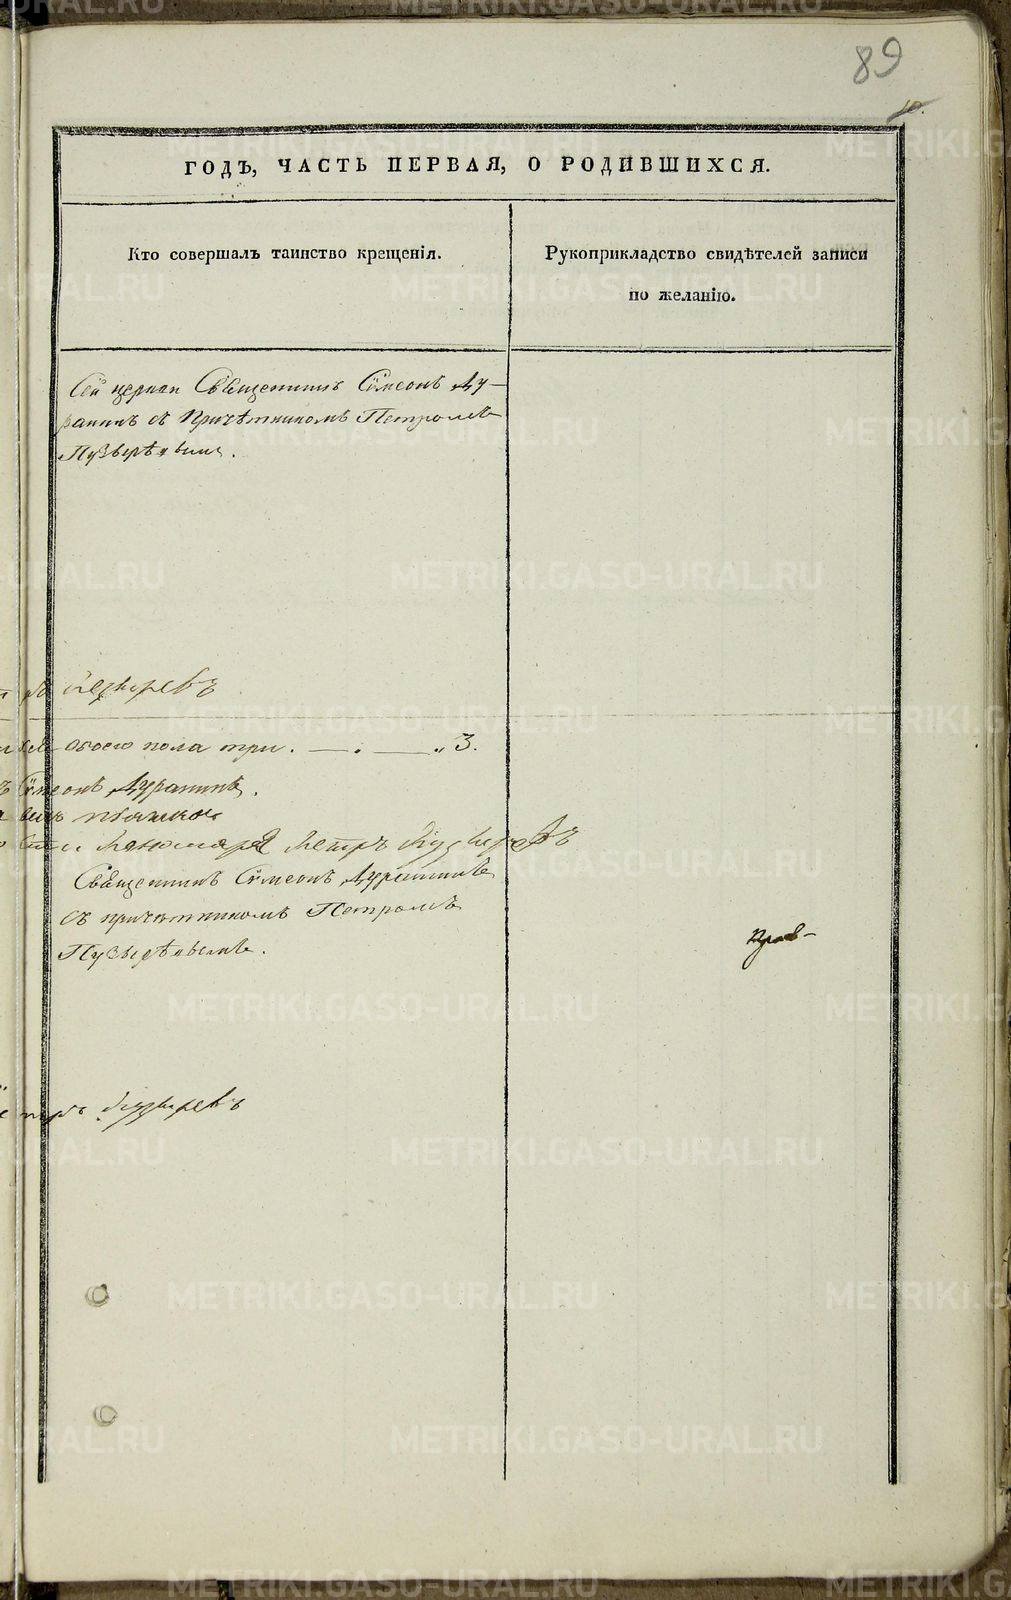 89
10.
ГОДЪ, ЧАСТЬ ПЕРВАЯ, О РОДИВШИХСЯ.
Кто совершалъ таинство крещенія.
Рукоприкладство свидѣтелей записи
по желанію.
Сей церкви Священникъ Сѵмеонъ Ду-
ранинъ съ Причѣтникомъ Петромъ
Пузырѣвымъ.
Пузыревъ
обоего пола три. — . — „3.
Сѵмеонъ Дуранинъ.
Пономарь Петръ Пузыревъ
Священникъ Сѵмеонъ Дуранинъ
съ причетникомъ Петромъ
Пузырѣвымъ.
Пузыревъ
METRIKI.GASO-URAL.RU